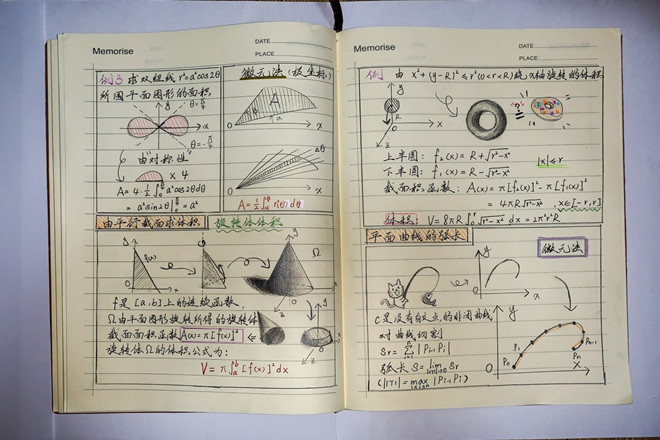 Memorise
DATE
PLACE
例3 求双纽线 r²=a²cos2θ
所围平面图形的面积.
θ=π/4
y
x
0
θ=-π/4
由对称性
× 4
A=4·½∫₀^(π/4) a²cos2θdθ
=a²sin2θ|₀^(π/4)=a²
微元法(极坐标)
A
α
0
x
Δθ
0
x
A=½∫ₐ^β r²(θ)dθ
由平行截面求体积
旋转体体积
f(x)
Ω
f是[a,b]上的连续函数,
Ω由平面图形旋转所得的旋转体
截面面积函数A(x)=π[f(x)]²
旋转体Ω的体积公式为:
V=π∫ₐᵇ[f(x)]²dx
y
x
z
Memorise
DATE
PLACE
例 由x²+(y-R)²≤r²(0<r<R)绕x轴旋转的体积
y
R
0
x
z
=
上半圆: f₂(x)=R+√(r²-x²)
下半圆: f₁(x)=R-√(r²-x²)
|x|≤r
截面积函数: A(x)=π[f₂(x)]²-π[f₁(x)]²
=4πR√(r²-x²), x∈[-r,r]
体积: V=8πR∫₀^r√(r²-x²) dx=2π²r²R
平面曲线的弧长
微元法
y
0
x
C是没有自交点的非闭曲线
对曲线切割
S_T=Σ|P_(i-1)P_i|
弧长 S=lim S_T
(||T||=max|P_(i-1)P_i|)
y
P₀
P₁
P_(n-1)
P_n
0
x